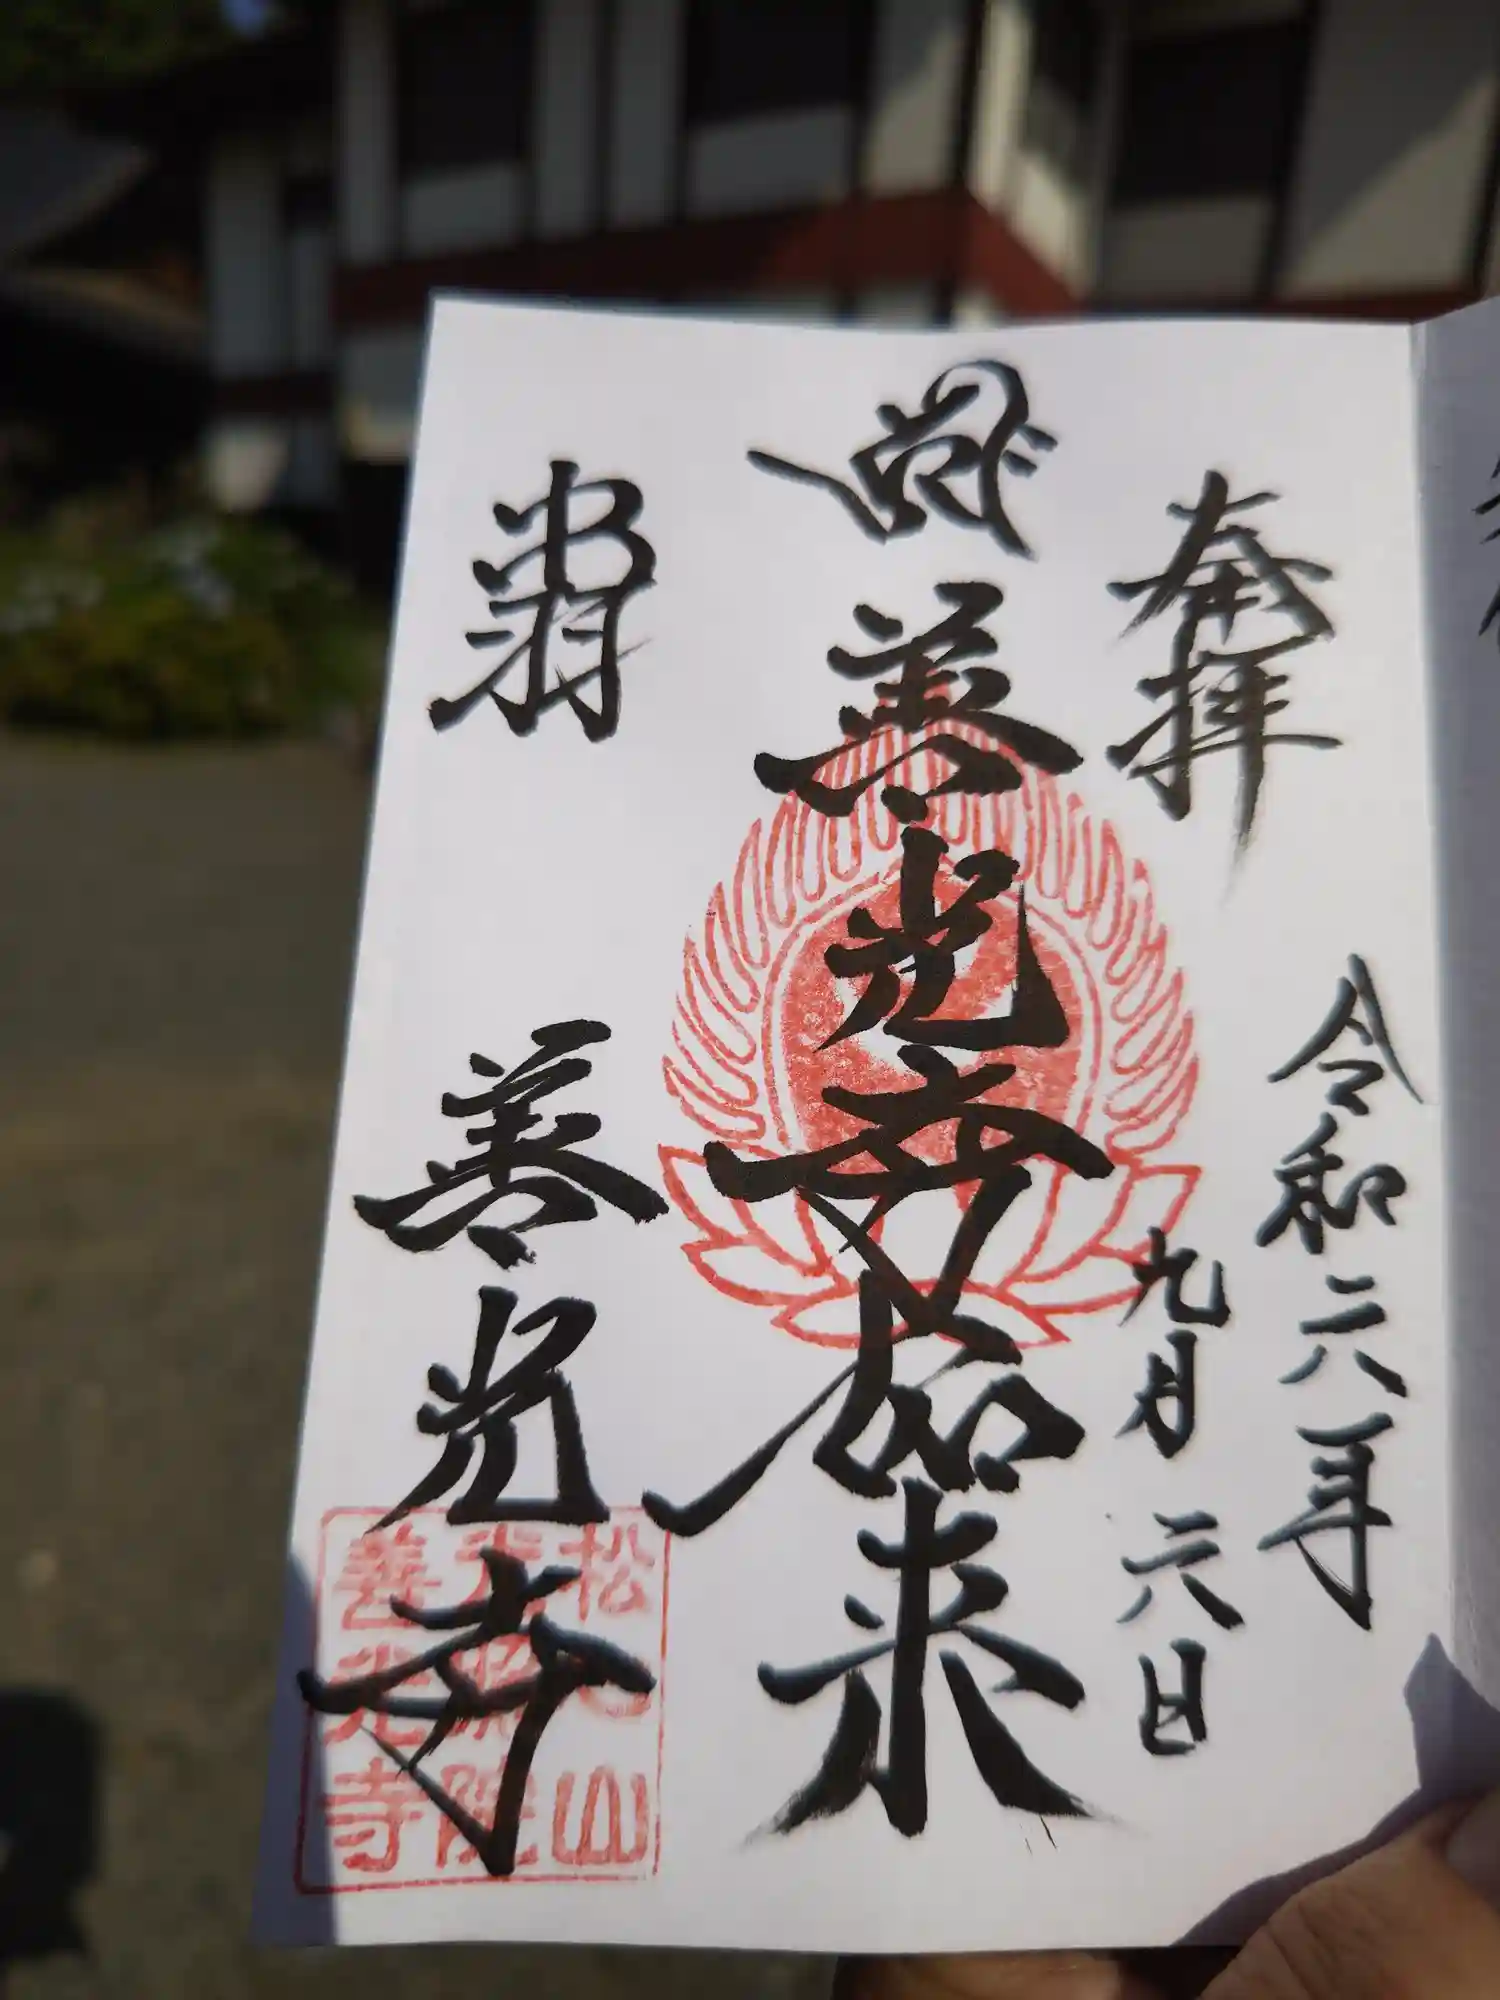 奉拝
令和六年
九月六日
善光寺如来
出羽
善光寺
松心山
光照院
善光寺